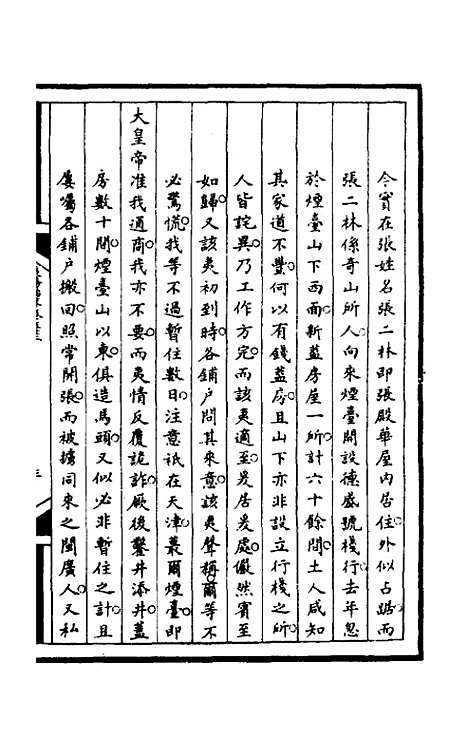 今實在張姓名張二林即張殿華屋內居住外似占踞而
張二林係奇山所人向來煙臺開設德盛號棧行去年忽
於煙臺山下西面新蓋房屋一所計六十餘間土人咸知
其家道不豐何以有錢蓋房且山下亦非設立行棧之所
人皆詫異乃工作方完而該夷適至爰居爰處儼然賓至
如歸又該夷初到時各鋪户問其來意該夷聲稱爾等不
必驚慌我等不過暫住數日注意祇在天津蕞爾煙臺即
大皇帝准我通商我亦不要而夷情反覆詭詐厥後鑿井添井蓋
房數十間煙臺山以東俱造馬頭又似必非暫住之計且
屢囑各鋪户搬回照常開張而被擄同來之閩廣人又私
三